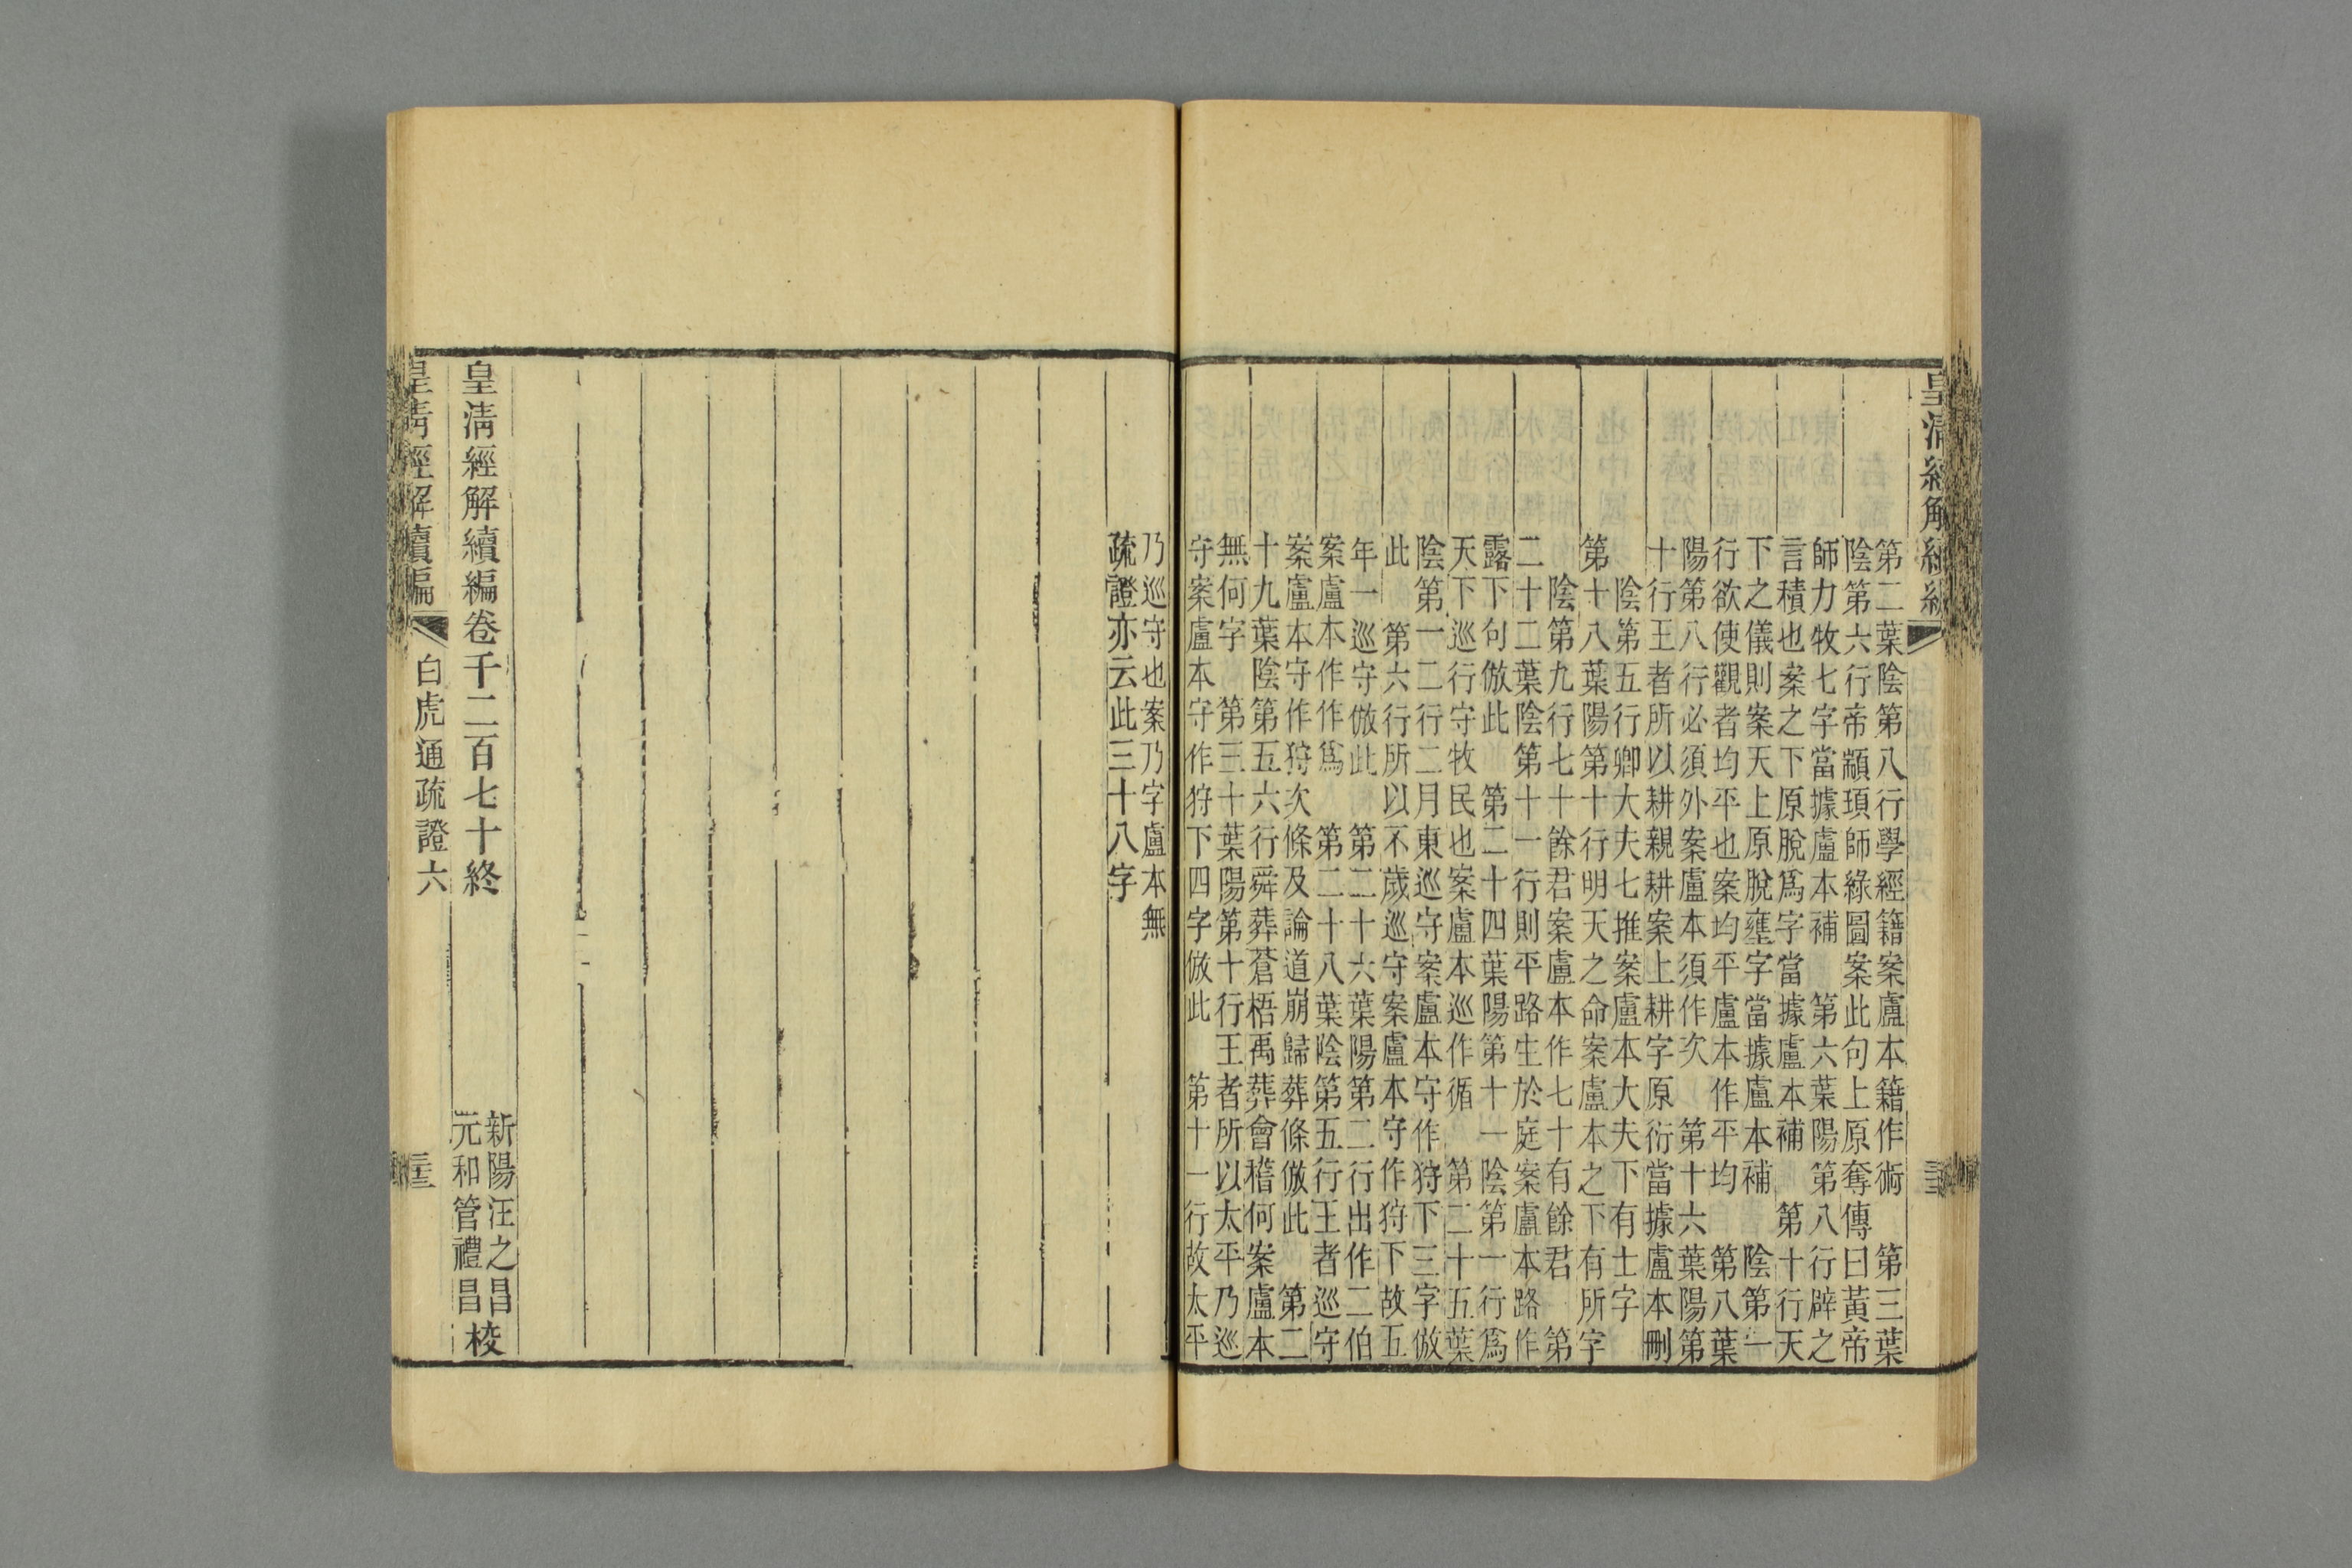 皇清經解續編
第二葉陰第八行學經籍案盧本籍作術　第三葉
陰第六行帝顓頊師綠圖案此句上原奪傳曰黃帝
師力牧七字當據盧本補　第六葉陽第八行辟之
言積也案之下原脫爲字當據盧本補　第十行天
下之儀則案天上原脫壅字當據盧本補　陰第一
行欲使觀者均平也案均平盧本作平均　第八葉
陽第八行必須外案盧本須作次　第十六葉陽第
十行王者所以耕親耕案上耕字原衍當據盧本刪
陰第五行卿大夫七推案盧本大夫下有士字
第十八葉陽第十行明天之命案盧本之下有所字
陰第九行七十餘君案盧本作七十有餘君　第
二十二葉陰第十一行則平路生於庭案盧本路作
露下句倣此　第二十四葉陽第十一陰第一行爲
天下巡行守牧民也案盧本巡作循　第二十五葉
陰第一二行二月東巡守案盧本守作狩下三字倣
此　第六行所以不歲巡守案盧本守作狩下故五
年一巡守倣此　第二十六葉陽第二行出作二伯
案盧本作作爲　第二十八葉陰第五行王者巡守
案盧本守作狩次條及論道崩歸葬條倣此　第二
十九葉陰第五六行舜葬蒼梧禹葬會稽何案盧本
無何字　第三十葉陽第十行王者所以太平乃巡
守案盧本守作狩下四字倣此　第十一行故太平
乃巡守也案乃字盧本無
疏證亦云此三十八字
皇清經解續編卷千二百七十終
新陽汪之昌
元和管禮昌
校
皇清經解續編
白虎通疏證六